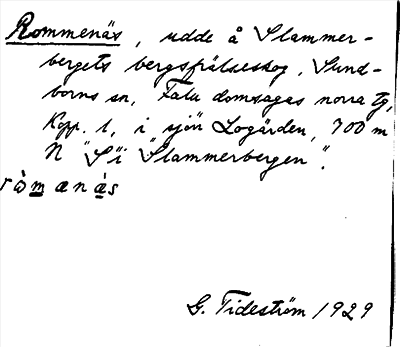 Rommenäs, udde å Slammer-
bergets bergsfrälseskog, Sund-
borns sn, Falu domsagas norra tg,
Kopp. l, i sjön Logärden, 700 m
N "S" i "Slammerbergen".
ròmanàs
G. Tideström 1929